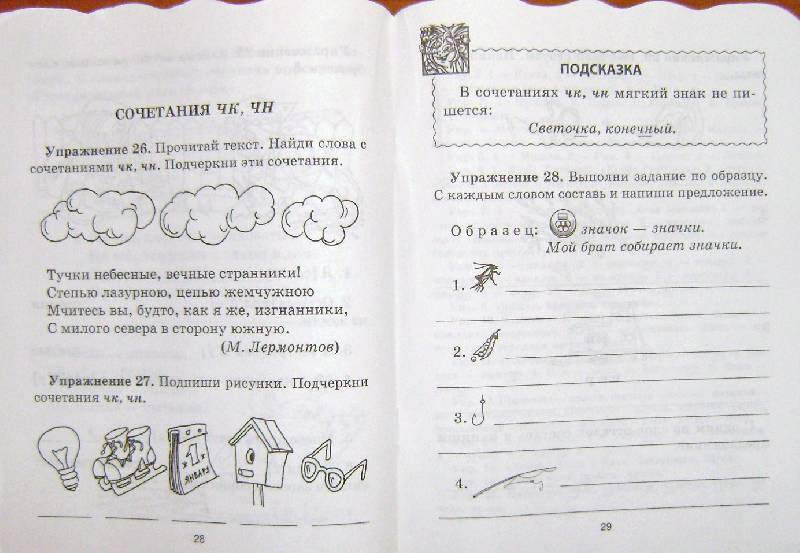 СОЧЕТАНИЯ ЧК, ЧН
Упражнение 26. Прочитай текст. Найди слова с
сочетаниями чк, чн. Подчеркни эти сочетания.
Тучки небесные, вечные странники!
Степью лазурною, цепью жемчужною
Мчитесь вы, будто, как я же, изгнанники,
С милого севера в сторону южную.
(М. Лермонтов)
Упражнение 27. Подпиши рисунки. Подчеркни
сочетания чк, чн.
1
ЯНВАРЬ
28
ПОДСКАЗКА
В сочетаниях чк, чн мягкий знак не пи-
шется:
Светочка, конечный.
Упражнение 28. Выполни задание по образцу.
С каждым словом составь и напиши предложение.
Образец: значок — значки.
Мой брат собирает значки.
1.
2.
3.
4.
29